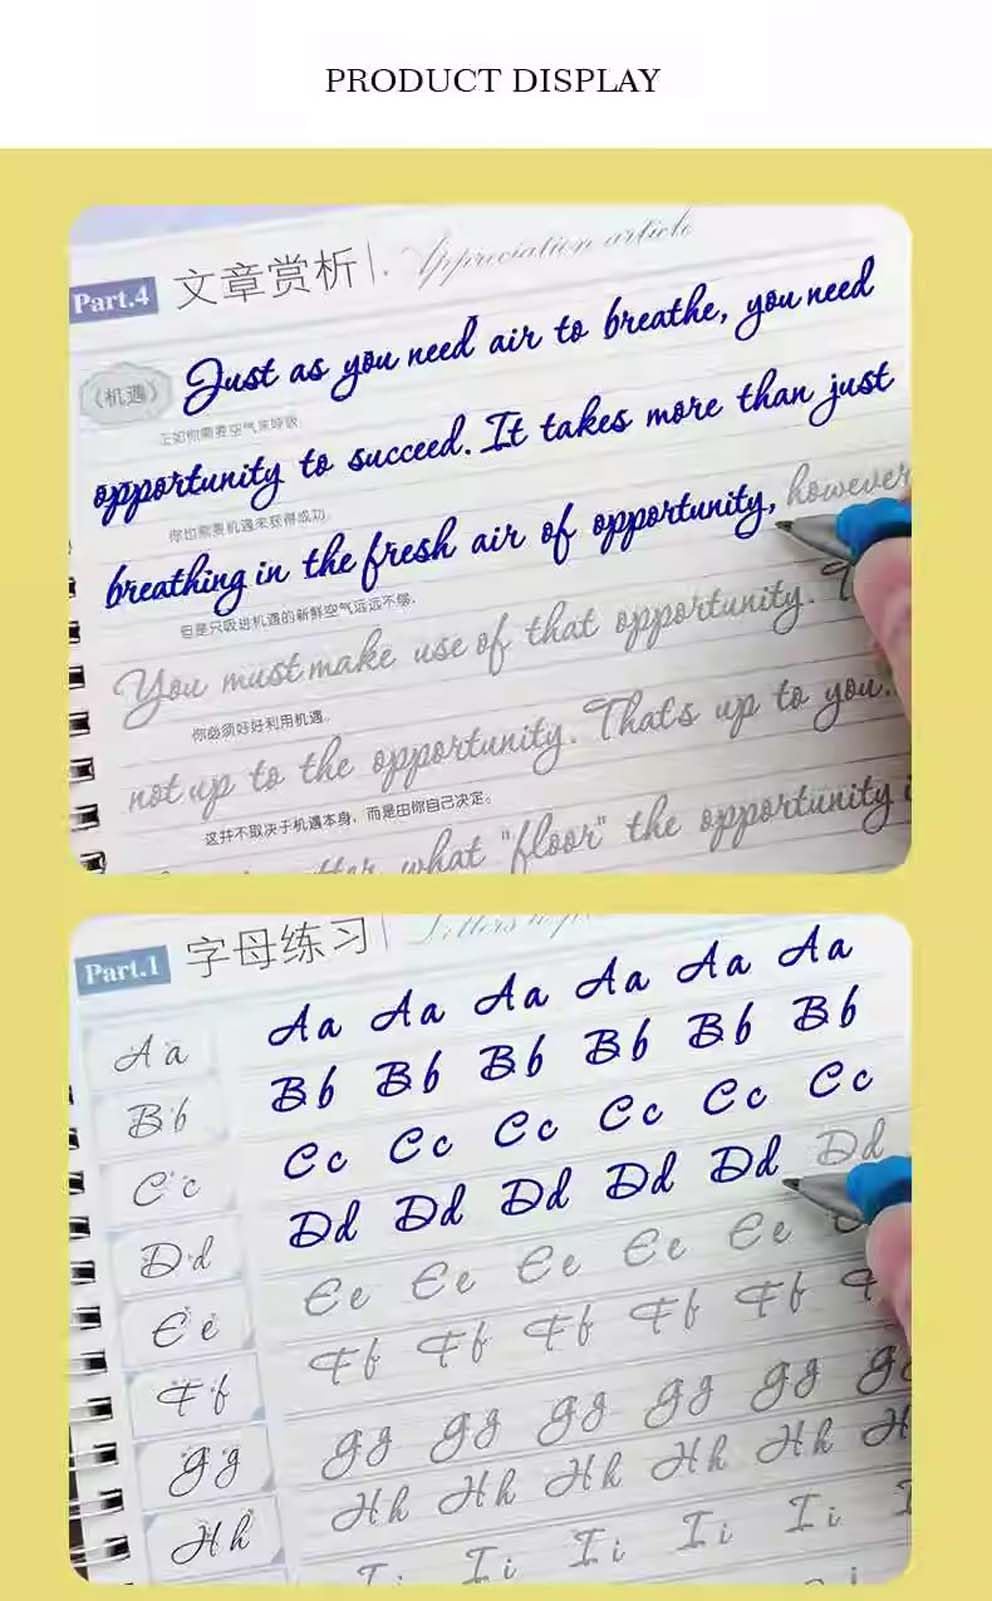 PRODUCT DISPLAY
Part.4 文章赏析 Appreciation article
《机遇》 Just as you need air to breathe, you need
正如你需要空气来呼吸
opportunity to succeed. It takes more than just
你也需要机遇来获得成功
breathing in the fresh air of opportunity, however
但是只吸进机遇的新鲜空气远远不够.
You must make use of that opportunity.
你必须好好利用机遇.
not up to the opportunity. Thats up to you.
这并不取决于机遇本身，而是由你自己决定。
what "floor" the opportunity
Part.1 字母练习 Letters
Aa Aa Aa Aa Aa Aa Aa
Bb Bb Bb Bb Bb Bb Bb
Cc Cc Cc Cc Cc Cc Cc
Dd Dd Dd Dd Dd Dd Dd
Ee Ee Ee Ee Ee Ee
Ff Ff Ff Ff Ff Ff F
Gg Gg Gg Gg Gg Gg Gg
Hh Hh Hh Hh Hh Hh H
Ii Ii Ii Ii I